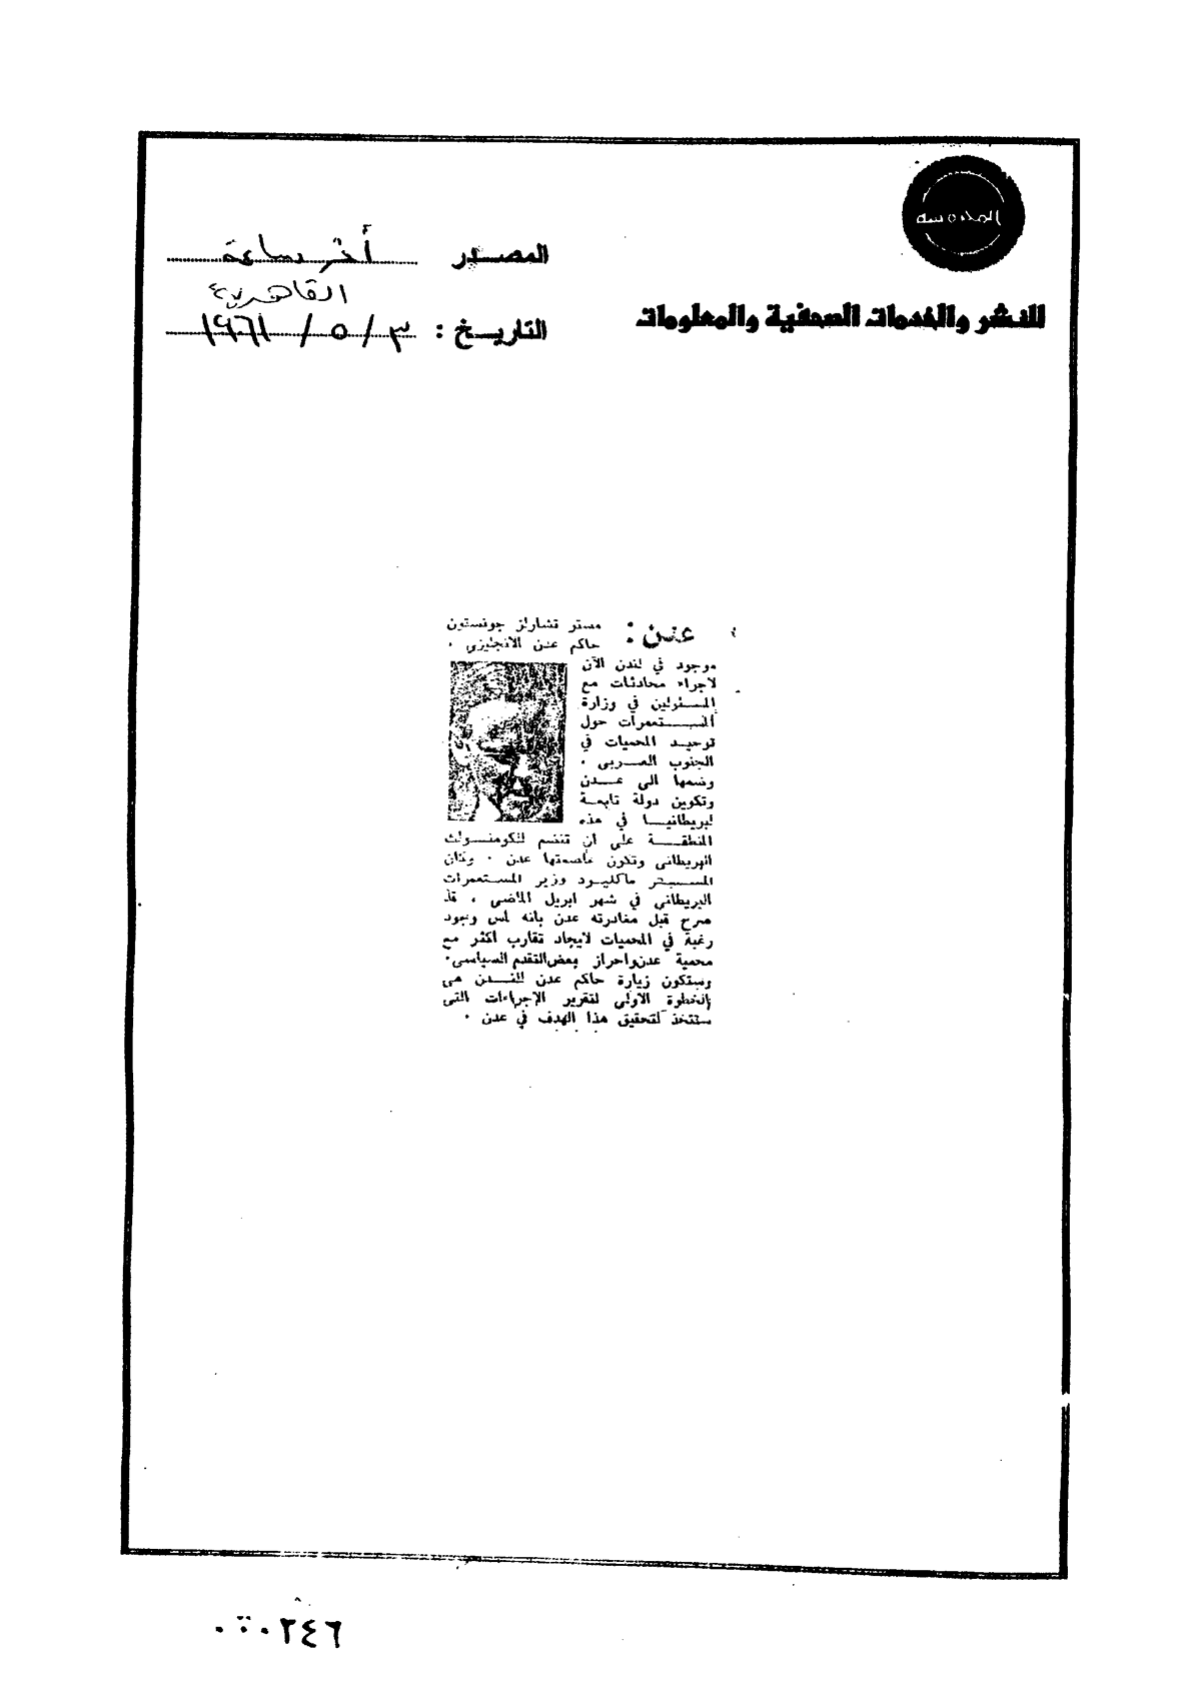 المعلومة
للنشر والخدمات الصحفية والمعلومات
المصدر أخر ساعة
القاهرية
التاريخ : ٣ / ٥ / ١٩٦١
عدن : مستر تشارلز جونستون
حاكم عدن الانجليزى .
موجود في لندن الآن
لاجراء محادثات مع
المسئولين في وزارة
المستعمرات حول
توحيد المحميات في
الجنوب العربى .
وضمها الى عدن
وتكوين دولة تابعة
لبريطانيا في هذه
المنطقة على ان تنضم للكومنولث
البريطانى وتكون عاصمتها عدن . وكان
المستر ماكليود وزير المستعمرات
البريطانى في شهر ابريل الماضى ، قد
صرح قبل مغادرته عدن بانه لمس وجود
رغبة في المحميات لايجاد تقارب اكثر مع
محمية عدن واحراز بعض التقدم السياسى .
وستكون زيارة حاكم عدن للندن هى
الخطوة الاولى لتقرير الإجراءات التى
ستتخذ لتحقيق هذا الهدف في عدن .
٢٤٦